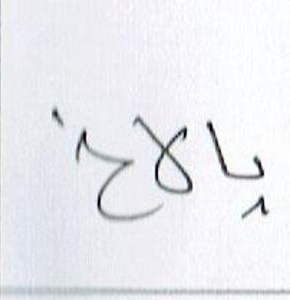 يالاخ